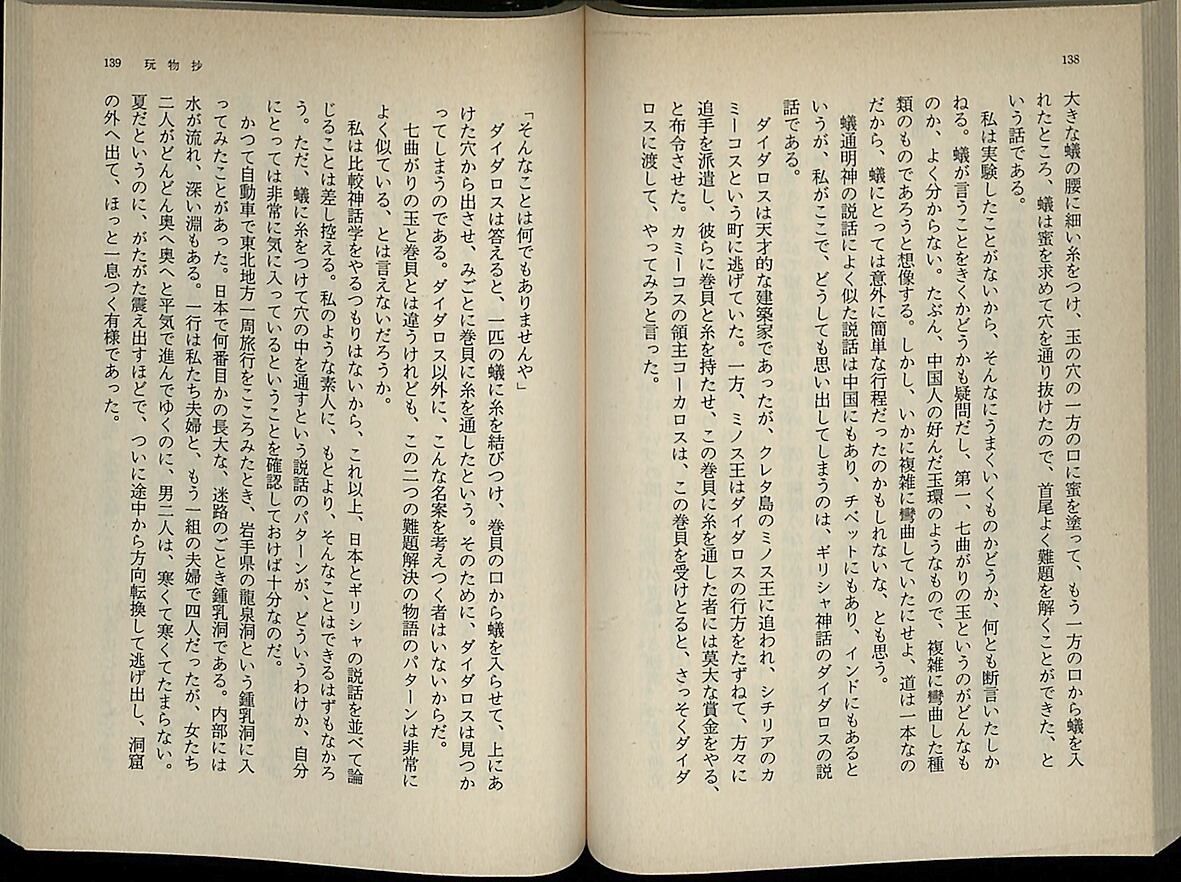 138
大きな蟻の腰に細い糸をつけ、玉の穴の一方の口に蜜を塗って、もう一方の口から蟻を入
れたところ、蟻は蜜を求めて穴を通り抜けたので、首尾よく難題を解くことができた、と
いう話である。
私は実験したことがないから、そんなにうまくいくものかどうか、何とも断言いたしか
ねる。蟻が言うことをきくかどうかも疑問だし、第一、七曲がりの玉というのがどんなも
のか、よく分からない。たぶん、中国人の好んだ玉環のようなもので、複雑に彎曲した種
類のものであろうと想像する。しかし、いかに複雑に彎曲していたにせよ、道は一本なの
だから、蟻にとっては意外に簡単な行程だったのかもしれないな、とも思う。
蟻通明神の説話によく似た説話は中国にもあり、チベットにもあり、インドにもあると
いうが、私がここで、どうしても思い出してしまうのは、ギリシャ神話のダイダロスの説
話である。
ダイダロスは天才的な建築家であったが、クレタ島のミノス王に追われ、シチリアのカ
ミーコスという町に逃げていた。一方、ミノス王はダイダロスの行方をたずねて、方々に
追手を派遣し、彼らに巻貝と糸を持たせ、この巻貝に糸を通した者には莫大な賞金をやる、
と布令させた。カミーコスの領主コーカロスは、この巻貝を受けとると、さっそくダイダ
ロスに渡して、やってみろと言った。
139 玩物抄
「そんなことは何でもありませんや」
ダイダロスは答えると、一匹の蟻に糸を結びつけ、巻貝の口から蟻を入らせて、上にあ
けた穴から出させ、みごとに巻貝に糸を通したという。そのために、ダイダロスは見つか
ってしまうのである。ダイダロス以外に、こんな名案を考えつく者はいないからだ。
七曲がりの玉と巻貝とは違うけれども、この二つの難題解決の物語のパターンは非常に
よく似ている、とは言えないだろうか。
私は比較神話学をやるつもりはないから、これ以上、日本とギリシャの説話を並べて論
じることは差し控える。私のような素人に、もとより、そんなことはできるはずもなかろ
う。ただ、蟻に糸をつけて穴の中を通すという説話のパターンが、どういうわけか、自分
にとっては非常に気に入っているということを確認しておけば十分なのだ。
かつて自動車で東北地方一周旅行をこころみたとき、岩手県の龍泉洞という鍾乳洞に入
ってみたことがあった。日本で何番目かの長大な、迷路のごとき鍾乳洞である。内部には
水が流れ、深い淵もある。一行は私たち夫婦と、もう一組の夫婦で四人だったが、女たち
二人がどんどん奥へ奥へと平気で進んでゆくのに、男二人は、寒くて寒くてたまらない。
夏だというのに、がたがた震え出すほどで、ついに途中から方向転換して逃げ出し、洞窟
の外へ出て、ほっと一息つく有様であった。